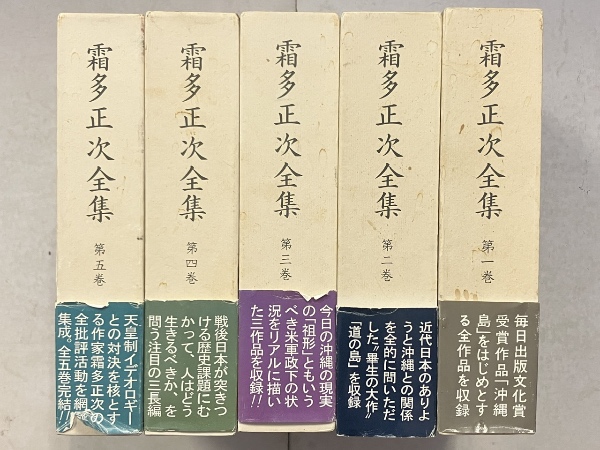 霜多正次全集
第一巻
毎日出版文化賞
受賞作品「沖縄
島」をはじめとす
る全作品を収録
霜多正次全集
第二巻
近代日本のありよ
うと沖縄との関係
を全的に問いただ
した〝畢生の大作〟
「道の島」を収録
霜多正次全集
第三巻
今日の沖縄の現実
の「祖形」ともいう
べき米軍政下の状
況をリアルに描い
た三作品を収録!!
霜多正次全集
第四巻
戦後日本が突きつ
ける歴史課題にむ
かって、人はどう
生きるべきか、を
問う注目の三長編
霜多正次全集
第五巻
天皇制イデオロギー
との対決を核とす
る作家霜多正次の
全批評活動を網
集成。全五巻完結!!